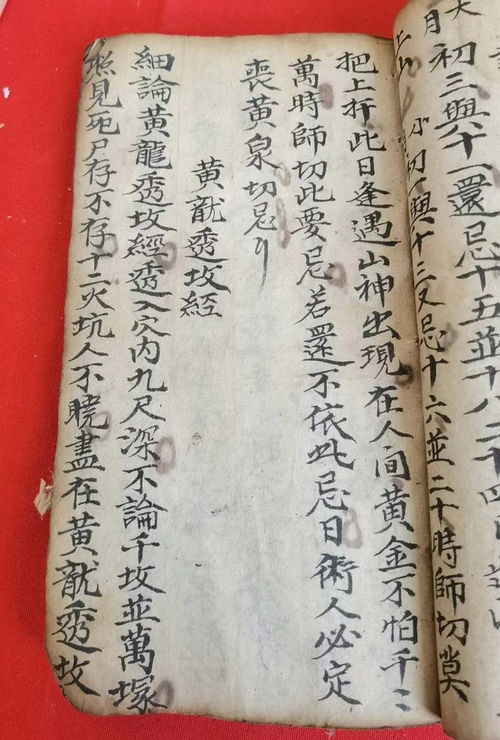 初三與六十一還忌十五並十八二十四
小初一與十三又忌十六並二十時師切莫
把上扦此日逢遇山神出現在人间黄金不怕千〻
萬時師切此要忌若還不依此忌日術人必定
喪黄泉切忌
黄龍透坟經
細論黄龍透坟經透入穴内九尺深不論千坟並萬塚
照見死尸存不存十二火坑人不曉盡在黄龍透坟